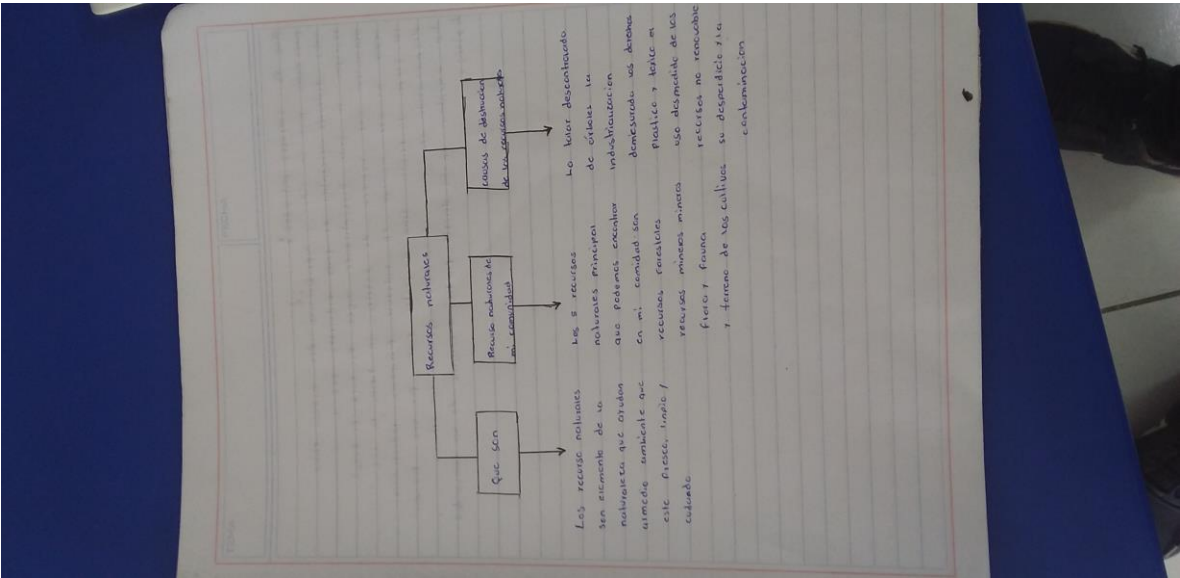 Recursos naturales
Que son
Recurso naturales de
mi comunidad
causas de destrucion
de los recursos naturales
Los recurso naturales
son elemento de la
naturaleza que ayudan
al medio ambiente que
este fresco, limpio y
Los 8 recursos
naturales principal
que podemos encontrar
en mi comidad son
recursos forestales
recursos mineros mineros
flora y fauna
y terreno de los cultivos
La talar descontrolada
de árboles la
industrialización
demesurada los derrames
plastico y toxico el
uso desmedido de los
recursos no renovable
su desperdicio y la
contaminacion